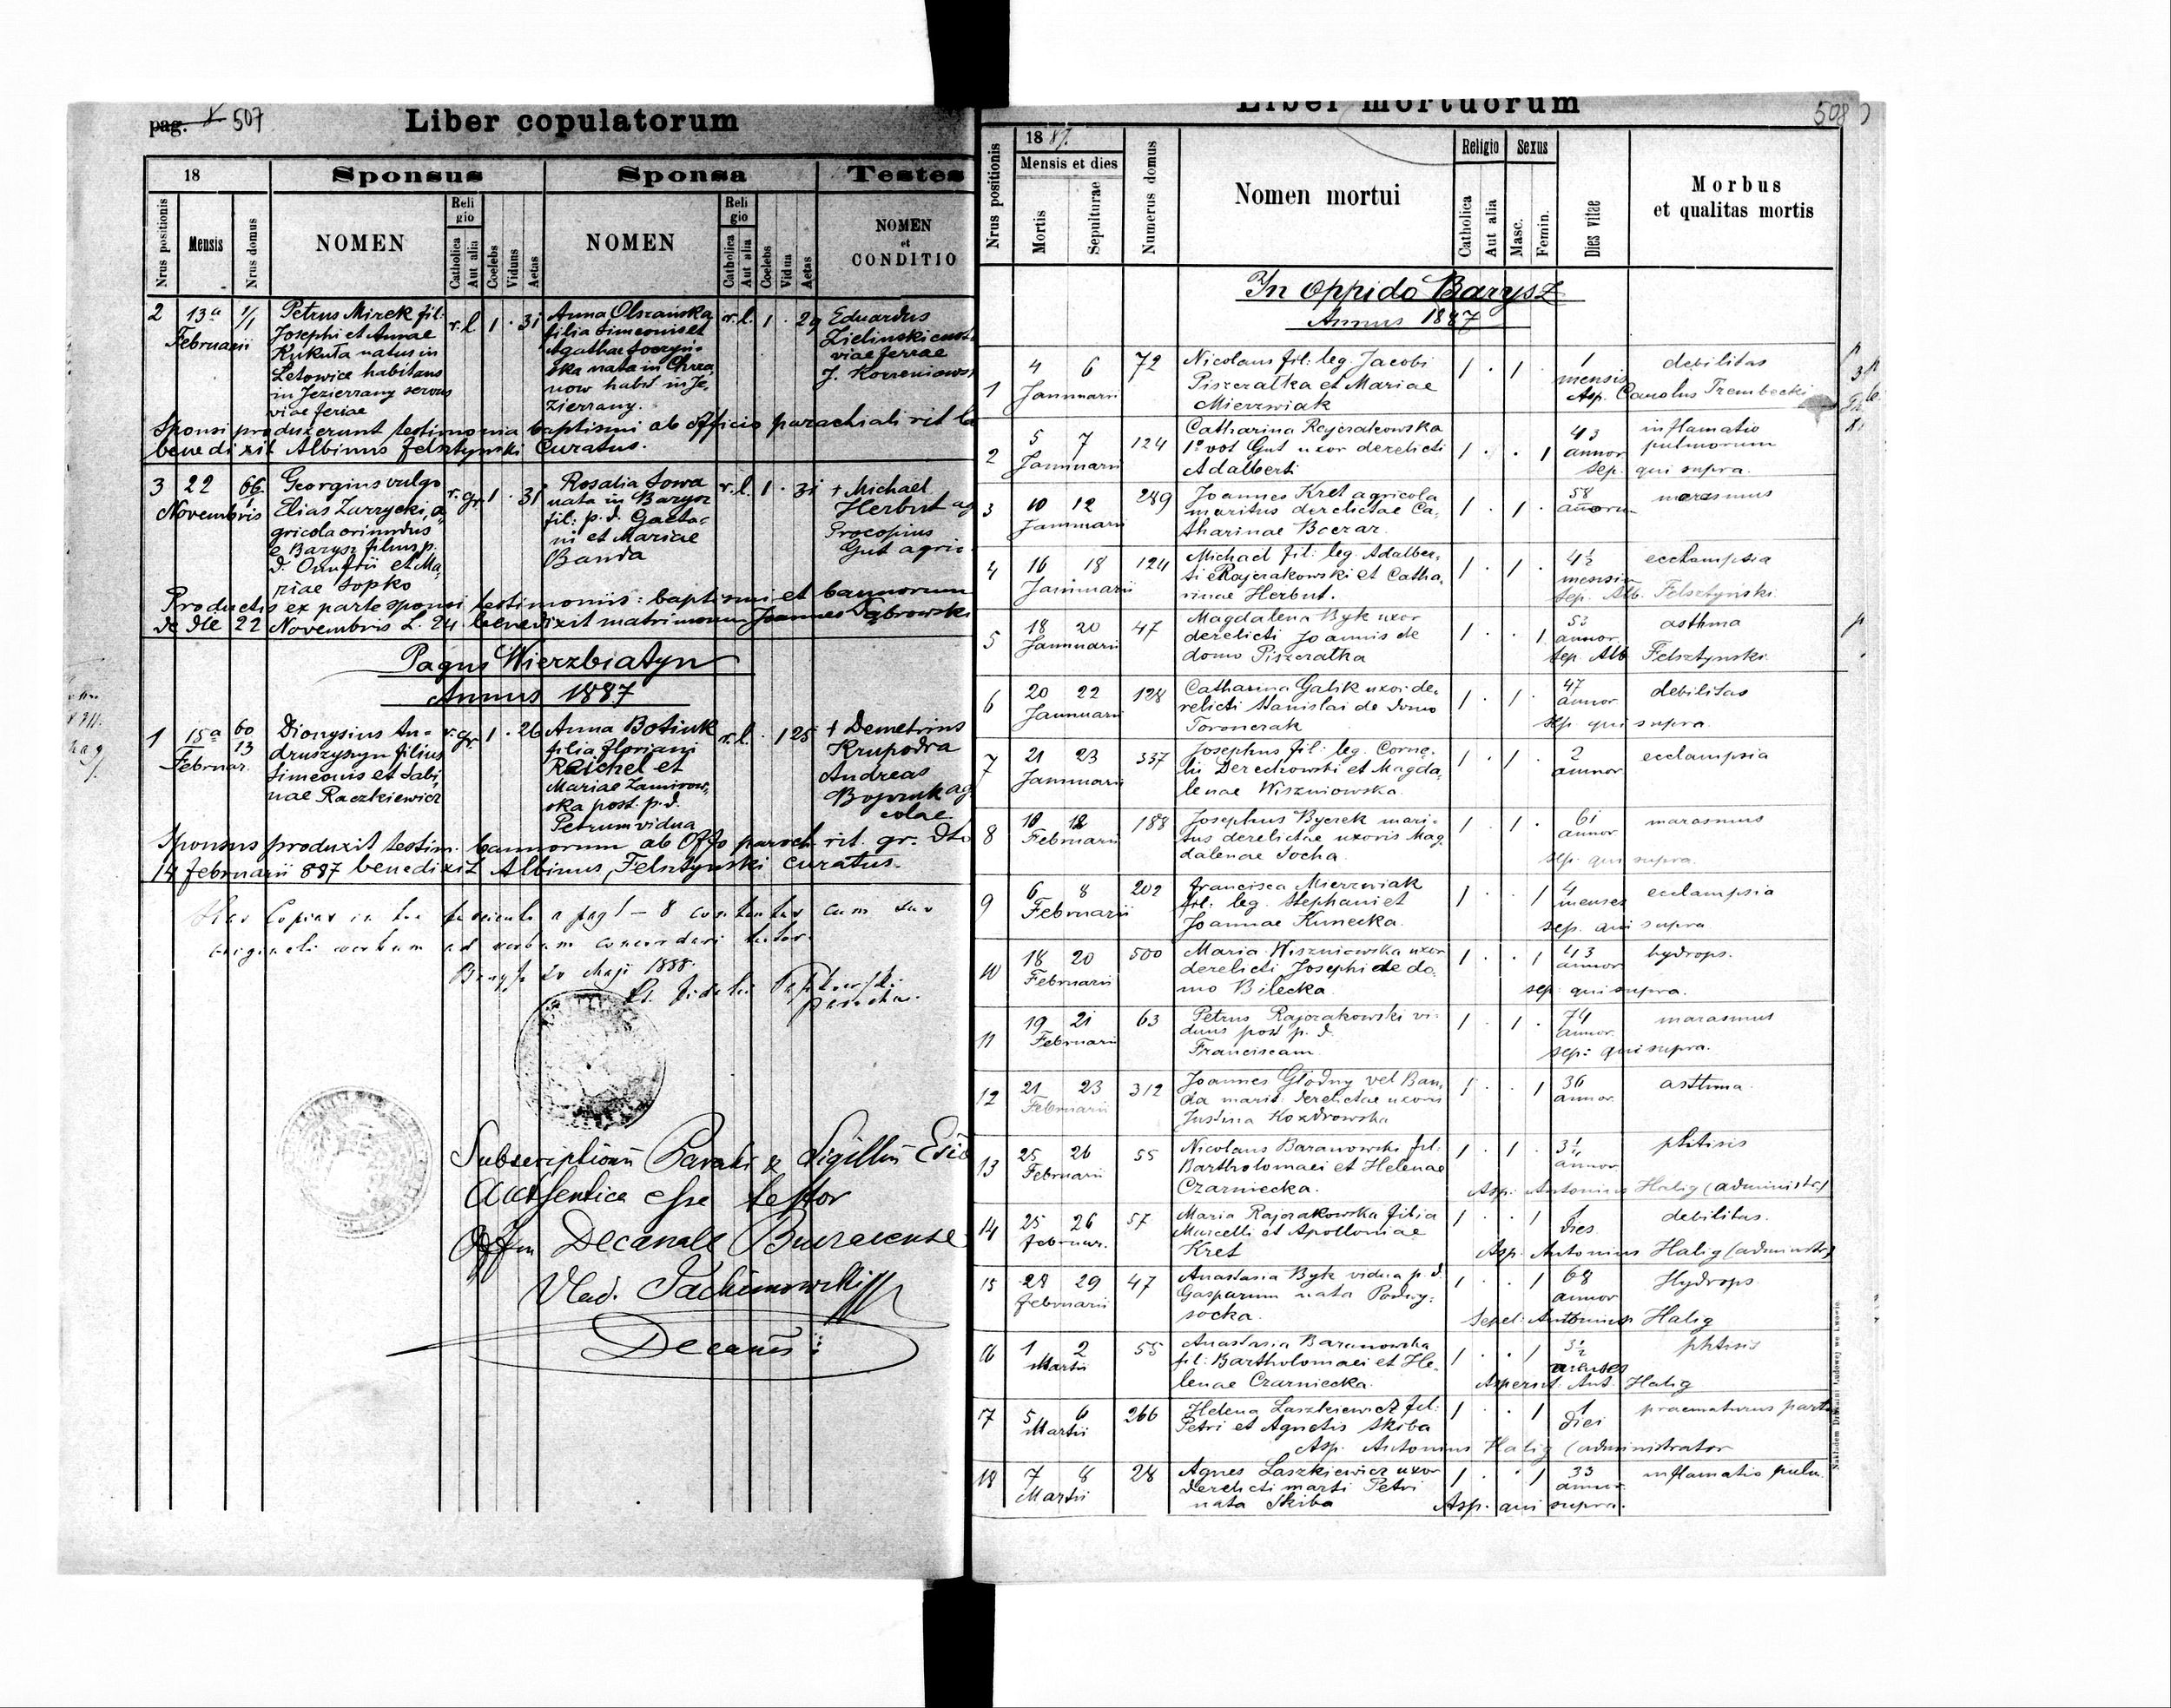 pag. 507
Liber copulatorum
18
Sponsus
Sponsa
Testes
Nrus positionis
Mensis
Nrus domus
NOMEN
Religio
Catholica
Aut alia
Coelebs
Viduus
Aetas
NOMEN
Religio
Catholica
Aut alia
Coelebs
Vidua
Aetas
NOMEN
et
CONDITIO
2 13a Februarii 1/1
Petrus Mirek fil.
Josephi et Annae
Kukuła natus in
Letowice habitans
in Jezierzany servus
viae feriae
r. l. 1 . 31
Anna Olszańska
filia Simeonis et
Agathae
ska nata in Chrza
now habit in Je,
zierzany.
r. l. 1 . 29
Eduardus
Zielinski
viae ferrae
J. Korzeniows
Sponsi produxerunt testimonia baptismi ab officio parochiali rit la
benedixit Albinus Felsztyński Curatus.
3 22 Novembris 66
Georgius vulgo
Elias Zarzycki, a
gricola oriundus
e Barysz filius p.
d. Onufrii et Ma,
riae Sopko
r. gr. 1 . 31
Rosalia Sowa
nata in Barysz
fil: p. d. Gaeta=
ni et Mariae
Banda
r. l. 1 . 31
+ Michael
Herbut ag
Procopius
Gut agric
Productis ex parte sponsi testimoniis: baptismi et bannorum
de dte 22 Novembris L. 24 benedixit matrimonium Joannes Dąbrowski
Pagus Wierzbiatyn
Annus 1887
1 15a Februar. 60 13
Dionysius An=
druszyszyn filius
Simeonis et Sabi,
nae Raczkiewicz
r. gr. 1 . 26
Anna Botiuk
filia Floriani
Reichel et
Mariae Zamirow,
ska post p. d.
Petrum vidua
r. l. . 1 25
+ Demetrius
Krupodra
Andreas
ag
colae
Sponsus produxit testim. bannorum ab Offo paroch rit. gr. dto
14 februarii 887 benedixit Albinus Felsztyński curatus.
Has Copias in hoc fasciculo a pag 1 – 8 contentas cum suo
originali verbum ad verbum concordari testor.
20 Maji 1888.
parochus.
Subscriptionem Parochi & Sigillum
Authentica esse testor
Offm Decanale Buczacense
Vlad. Jachimowski
Decanus
Liber mortuorum
508
Nrus positionis
1887.
Mensis et dies
Mortis
Sepulturae
Numerus domus
Nomen mortui
Religio
Catholica
Aut alia
Sexus
Masc.
Femin.
Dies vitae
Morbus
et qualitas mortis
In oppido Barysz
Annus 1887
1 4 6 Januarii 72
Nicolaus fil: leg. Jacobi
Piszczatka et Mariae
Mierzwiak
1 . 1 . 1 mensis debilitas
Asp. Carolus Trembecki
2 5 7 Januarii 124
Catharina Rajczakowska
1o vot Gut uxor derelicti
Adalberti
1 . . 1 43 annor inflamatio pulmorum
Sep. qui supra.
3 10 12 Januarii 289
Joannes Kret agricola
maritus derelictae Ca,
tharinae Boczar.
1 . 1 . 58 annorum marasmus
4 16 18 Januarii 124
Michael fil: leg. Adalber=
ti Rajczakowski et Catha,
rinae Herbut.
1 . 1 . 4½ mensium ecclampsia
Sep. Alb. Felsztyński
5 18 20 Januarii 47
Magdalena Byk uxor
derelicti Joannis de
domo Piszczatka
1 . . 1 53 annor. asthma
Sep. Alb Felsztynski
6 20 22 Januarii 128
Catharina Galik uxor de,
relicti Stanislai de domo
Toronczak
1 . 1 . 47 annor debilitas
Sep qui supra.
7 21 23 Januarii 337
Josephus fil: leg. Corne,
lii Derechowski et Magda,
lenae Wiszniowska.
1 . 1 . 2 annor ecclampsia
8 10 12 Februarii 188
Josephus Byczek mari=
tus derelictae uxoris Mag
dalenae Socha.
1 . 1 . 61 annor marasmus
sep. qui supra.
9 6 8 Februarii 202
Francisca Mierzwiak
fil: leg. Stephani et
Joannae Kunecka.
1 . . 1 4 menses ecclampsia
sep. qui supra
10 18 20 Februarii 500
Maria Wiszniowska uxor
derelicti Josephi de do,
mo Bilecka.
1 . . 1 43 annor hydrops.
sep: qui supra.
11 19 21 Februarii 63
Petrus Rajczakowski vi=
duus post p. d.
Franciscam.
1 . 1 . 74 annor marasmus
sep: qui supra.
12 21 23 Februarii 312
Joannes Głodny vel Ban,
da marit. derelictae uxoris
Justina Kozdrowska
1 . . 1 36 annor asthma.
13 25 26 Februarii 55
Nicolaus Baranowski fil.
Bartholomaei et Helenae
Czarniecka.
1 . 1 . annor phtisis
Asp: Antonius Halig (administr)
14 25 26 februar. 57
Maria Rajczakowska filia
Marcelli et Apolloniae
Kret
1 . . 1 1 dies. debilitas.
Asp. Antonius Halig (administr)
15 28 29 februarii 47
Anastasia Byk vidua p. d.
Gasparum nata Podwy,
socka.
1 . . 1 68 annor Hydrops
Sepel: Antonius Halig
16 1 2 Martii 55
Anastasia Baranowska
fil: Bartholomaei et He=
lenae Czarniecka.
1 . . 1 3½ menses phtisis
Aspersit. Ant. Halig
17 5 6 Martii 266
Helena Laszkiewicz fil:
Petri et Agnetis Skiba
1 . . 1 1 diei praematurus partus
Asp. Antonius Halig (administrator
18 7 8 Martii 28
Agnes Laszkiewicz uxor
derelicti mariti Petri
nata Skiba
1 . . 1 33 annor inflamatio pulm.
Asp. qui supra.
Nakładem Drukarni Ludowej we Lwowie